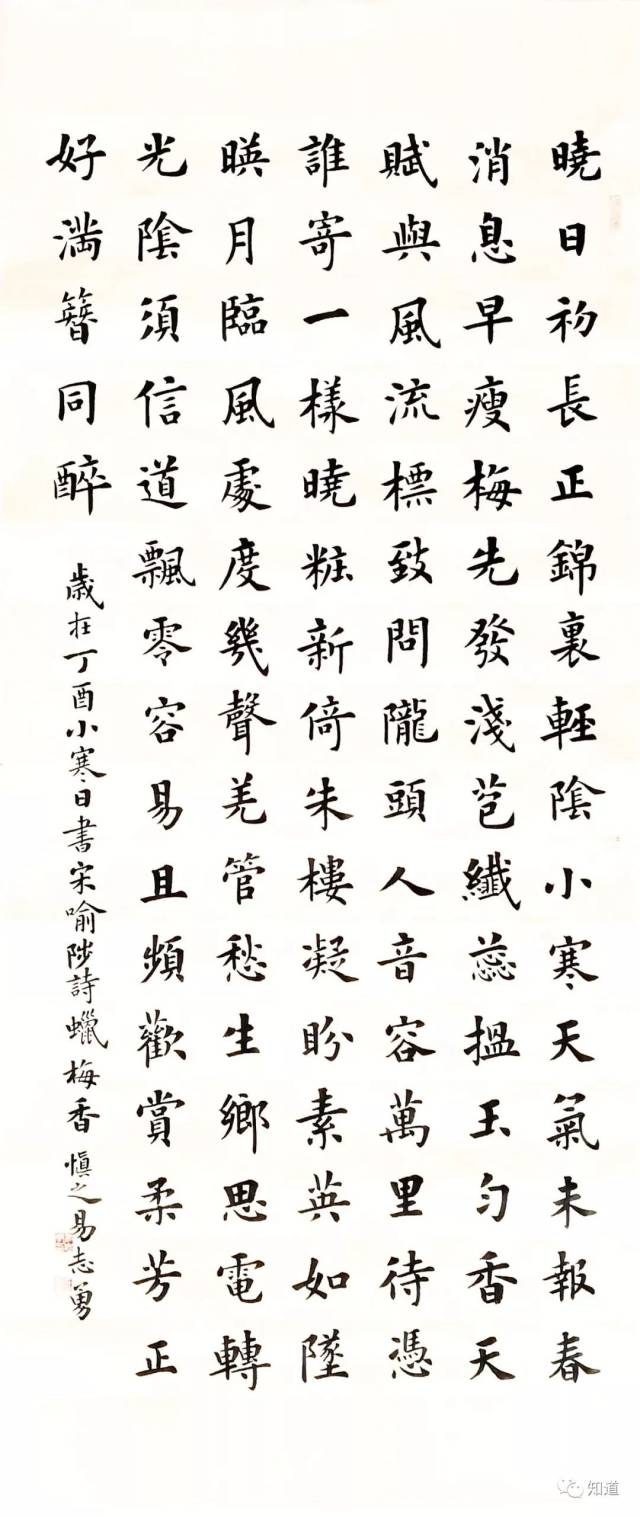 曉日初長正錦裏輕陰小寒天氣未報春
消息早瘦梅先發淺苞纖蕊揾玉勻香天
賦與風流標致問隴頭人音容萬里待憑
誰寄一樣曉粧新倚朱樓凝盼素英如墜
暎月臨風處度幾聲羌管愁生鄉思電轉
光陰須信道飄零容易且頻歡賞柔芳正
好滿簪同醉
歲在丁酉小寒日書宋喻陟詩蠟梅香 慎之易志勇
知道